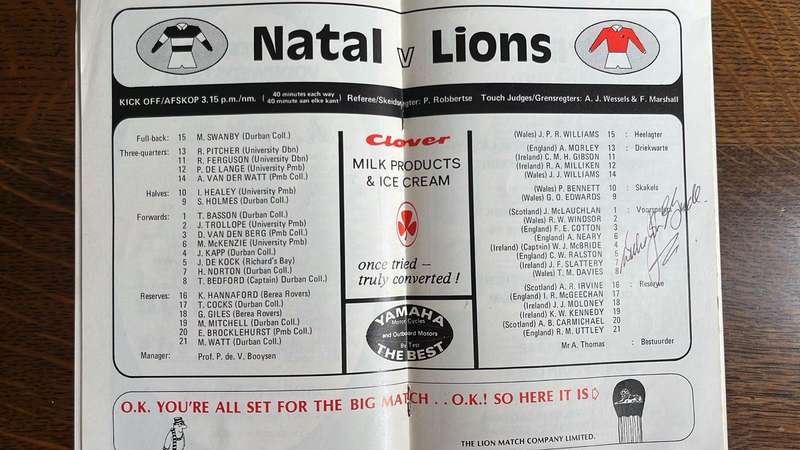 Natal v Lions
KICK OFF/AFSKOP 3.15 p.m./nm. ( 40 minutes each way
40 minute aan elke kant ) Referee/Skeidsregter: P. Robbertse Touch Judges/Grensregters: A. J. Wessels & F. Marshall
Full-back: 15 M. SWANBY (Durban Coll.)
Three-quarters: 13 R. PITCHER (University Dbn)
11 R. FERGUSON (University Dbn)
12 P. DE LANGE (University Pmb)
14 A. VAN DER WATT (Pmb Coll.)
Halves: 10 I. HEALEY (University Pmb)
9 S. HOLMES (Durban Coll.)
Forwards: 1 T. BASSON (Durban Coll.)
2 J. TROLLOPE (University Pmb)
3 D. VAN DEN BERG (Pmb Coll.)
6 M. McKENZIE (University Pmb)
4 J. KAPP (Durban Coll.)
5 J. DE KOCK (Richard's Bay)
7 H. NORTON (Durban Coll.)
8 T. BEDFORD (Captain) Durban Coll.)
Reserves: 16 K. HANNAFORD (Berea Rovers)
17 T. COCKS (Durban Coll.)
18 G. GILES (Berea Rovers)
19 M. MITCHELL (Durban Coll.)
20 E. BROCKLEHURST (Pmb Coll.)
21 M. WATT (Durban Coll.)
Manager: Prof. P. de V. Booysen
Clover
MILK PRODUCTS
& ICE CREAM
once tried —
truly converted !
YAMAHA
Motor Cycles
and Outboard Motors
By Test
THE BEST
(Wales) J. P. R. WILLIAMS 15 : Heelagter
(England) A. MORLEY 13 : Driekwarte
(Ireland) C. M. H. GIBSON 11
(Ireland) R. A. MILLIKEN 12
(Wales) J. J. WILLIAMS 14
(Wales) P. BENNETT 10 : Skakels
(Wales) G. O. EDWARDS 9
(Scotland) J. McLAUCHLAN 1 : Voorspelers
(Wales) R. W. WINDSOR 2
(England) F. E. COTTON 3
(England) A. NEARY 6
(Ireland) (Captain) W. J. McBRIDE 4
(England) C. W. RALSTON 5
(Ireland) J. F. SLATTERY 7
(Wales) T. M. DAVIES 8
(Scotland) A. R. IRVINE 16 : Reserwe
(England) I. R. McGEECHAN 17
(Ireland) J. J. MOLONEY 18
(Ireland) K. W. KENNEDY 19
(Scotland) A. B. CARMICHAEL 20
(England) R. M. UTTLEY 21
Mr A. Thomas : Bestuurder
O.K. YOU'RE ALL SET FOR THE BIG MATCH . . O.K.! SO HERE IT IS
THE LION MATCH COMPANY LIMITED.